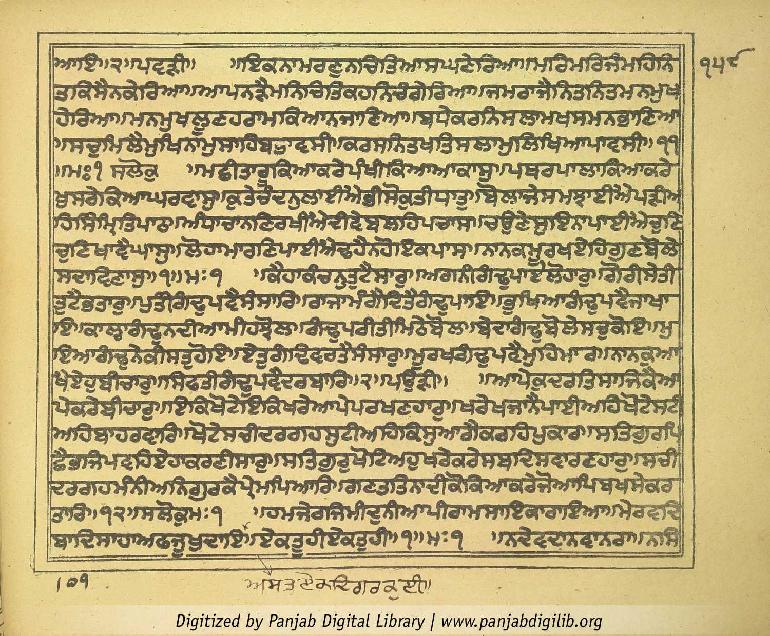 ਆਇ॥੨॥ਪਵੜੀ॥ ॥ਇਕਨਾਮਰਣੁਨਚਿਤਿਆਸਘਣੇਰਿਆ॥ਮਰਿਮਰਿਜੰਮਹਿਨਿ ੧੫੬
ਤਾਕਿਸੈਨਕੇਰਿਆ॥ਆਪਨੜੈਮਨਿਚਿਤਿਕਹਨਿਚੰਗੇਰਿਆ॥ਜਮਰਾਜੈਨਿਤਨਿਤਮਨਮੁਖ
ਹੇਰਿਆ॥ਮਨਮੁਖਲੂਣਹਰਾਮਾਕਿਆਨਜਾਣਿਆ॥ਬਧੇਕਰਨਿਸਲਾਮਖਸਮਨਭਾਣਿਆ
॥ਸਚੁਮਿਲੈਮੁਖਿਨਾਮੁਸਾਹਿਬਭਾਵਸੀ॥ਕਰਸਨਿਤਖਤਿਸਲਾਮੁਲਿਖਿਆਪਾਵਸੀ॥੧੧
॥ਮਃ੧ ਸਲੋਕੁ ॥ਮਛੀਤਾਰੂਕਿਆਕਰੇਪੰਖੀਕਿਆਆਕਾਸੁ॥ਪਥਰਪਾਲਾਕਿਆਕਰੇ
ਖੁਸਰੇਕਿਆਘਰਵਾਸੁ॥ਕੁਤੇਚੰਦਨੁਲਾਈਐਭੀਸੋਕੁਤੀਧਾਤੁ॥ਬੋਲਾਜੇਸਮਝਾਈਐਪੜੀਅ
ਹਿਸਿੰਮ੍ਰਿਤਿਪਾਠ॥ਅੰਧਾਚਾਨਣਿਰਖੀਐਦੀਵੇਬਲਹਿਪਚਾਸ॥ਚਉਣੇਸੁਇਨਾਪਾਈਐਚੁਣਿ
ਚੁਣਿਖਾਵੈਘਾਸੁ॥ਲੋਹਾਮਾਰਣਿਪਾਈਐਢਹੈਨਹੋਇਕਪਾਸ॥ਨਾਨਕਮੂਰਖਏਹਿਗੁਣਬੋਲੇ
ਸਦਾਵਿਣਾਸੁ॥੧॥ਮਃ੧ ॥ਕੈਹਾਕੰਚਨੁਤੁਟੈਸਾਰੁ॥ਅਗਨੀਗੰਢੁਪਾਏਲੋਹਾਰੁ॥ਗੋਰੀਸੇਤੀ
ਤੁਟੈਭਤਾਰੁ॥ਪੁਤੀਗੰਢੁਪਵੈਸੰਸਾਰਿ॥ਰਾਜਾਮੰਗੈਦਿਤੈਗੰਢੁਪਾਇ॥ਭੁਖਿਆਗੰਢੁਪਵੈਜਾਖਾ
ਇ॥ਕਾਲ੍ਹਾਗੰਢੁਨਦੀਆਮੀਹਝੋਲ॥ਗੰਢੁਪਰੀਤੀਮਿਠੇਬੋਲ॥ਬੇਦਾਗੰਢੁਬੋਲੇਸਚੁਕੋਇ॥ਮੁ
ਇਆਗੰਢੁਨੇਕੀਸਤੁਹੋਇ॥ਏਤੁਗੰਢਿਵਰਤੈਸੰਸਾਰੁ॥ਮੂਰਖਗੰਢੁਪਵੈਮੁਹਿਮਾਰ॥ਨਾਨਕੁਆ
ਖੈਏਹੁਬੀਚਾਰੁ॥ਸਿਫਤੀਗੰਢੁਪਵੈਦਰਬਾਰਿ॥੨॥ਪਉੜੀ॥ ॥ਆਪੇਕੁਦਰਤਿਸਾਜਿਕੈਆ
ਪੇਕਰੇਬੀਚਾਰੁ॥ਇਕਿਖੋਟੇਇਕਿਖਰੇਆਪੇਪਰਖਣਹਾਰੁ॥ਖਰੇਖਜਾਨੈਪਾਈਅਹਿਖੋਟੇਸਟੀ
ਅਹਿਬਾਹਰਵਾਰਿ॥ਖੋਟੇਸਚੀਦਰਗਹਸੁਟੀਅਹਿਕਿਸੁਆਗੈਕਰਹਿਪੁਕਾਰ॥ਸਤਿਗੁਰਪਿ
ਛੈਭਜਿਪਵਹਿਏਹਾਕਰਣੀਸਾਰੁ॥ਸਤਿਗੁਰੁਖੋਟਿਅਹੁਖਰੇਕਰੇਸਬਦਿਸਵਾਰਣਹਾਰੁ॥ਸਚੀ
ਦਰਗਹਮੰਨੀਅਨਿਗੁਰਕੈਪ੍ਰੇਮਪਿਆਰਿ॥ਗਣਤਤਿਨਾਦੀਕੋਕਿਆਕਰੇਜੋਆਪਿਬਖਸੇਕਰ
ਤਾਰਿ॥੧੨॥ਸਲੋਕੁਮਃ੧ ॥ਹਮਜੇਰਜਿਮੀਦੁਨੀਆਪੀਰਾਮਸਾਇਕਾਰਾਇਆ॥ਮੇਰਵਦਿ
ਬਾਦਿਸਾਹਾਅਫਜੂਖੁਦਾਇ॥ਏਕਤੂਹੀਏਕਤੁਹੀ॥੧॥ਮਃ੧ ॥ਨਦੇਵਦਾਨਵਾਨਰਾ॥ਨਸਿ
੧੦੧
Digitized by Panjab Digital Library | www.panjabdigilib.org